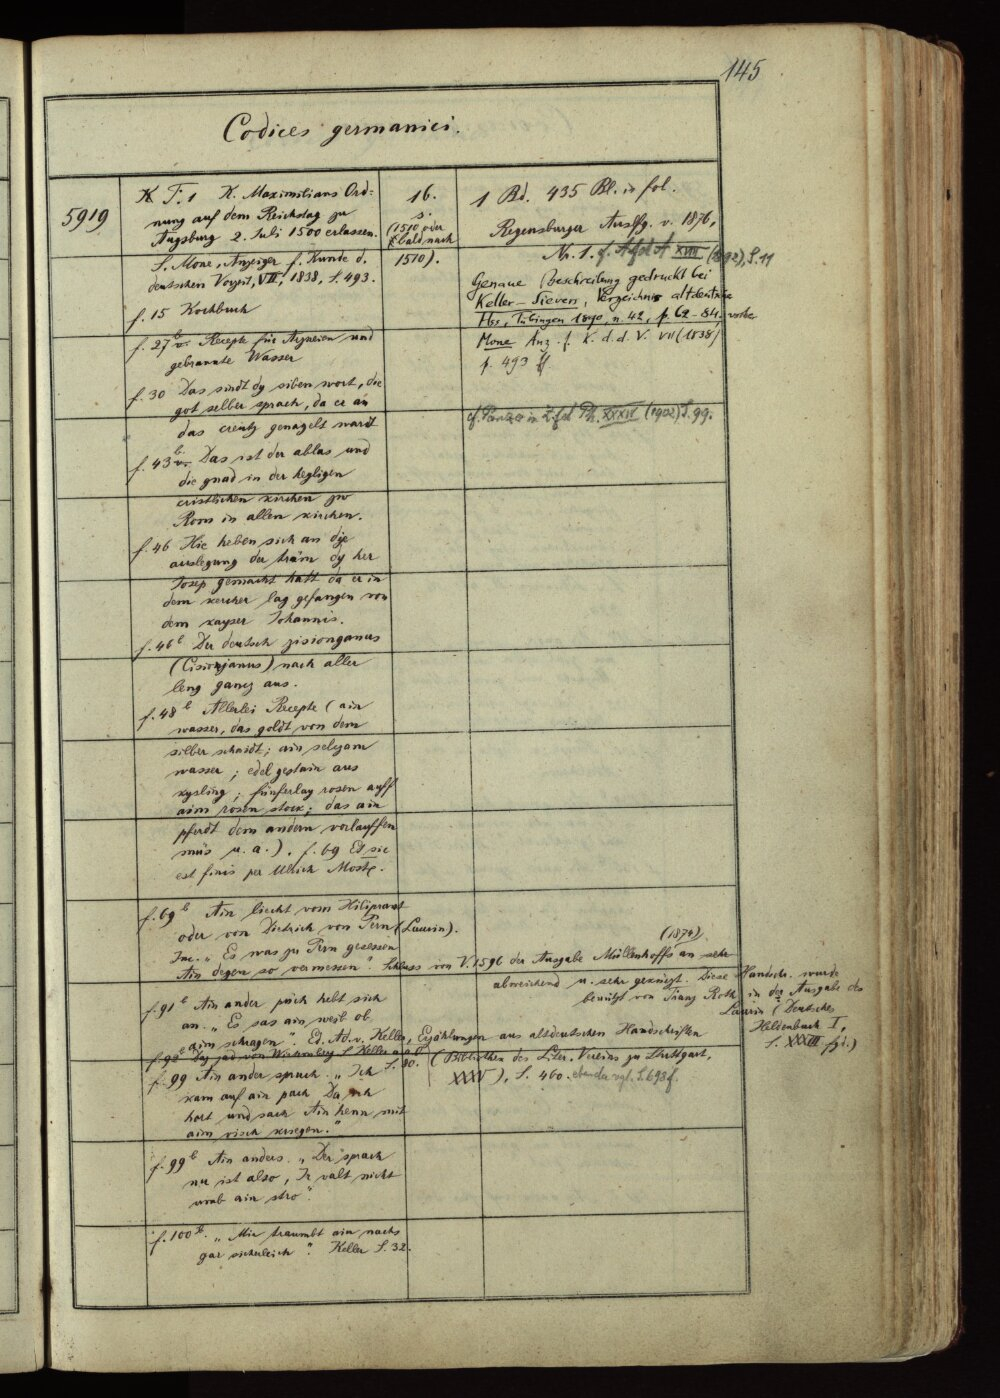 145
Codices germanici.
5919
F. 1 K. Maximilians Ord-
nung auf dem Reichstag zu
Augsburg 2. Juli 1500 erlassen.
S. Mone, Anzeiger f. Kunde d.
deutschen Vorzeit, VII, 1838, S. 493.
f. 15 Kochbuch
f. 27b Recepte für Arzneien und
gebrannte Wasser
f. 30 Das sindt dy siben wort, die
got selber sprach, da er an
das creutz genagelt wardt
f. 43b Das ist der ablas und
die gnad in der heyligen
cristlichen kirchen zw
Rom in allen kirchen.
f. 46 Hie heben sich an dye
auslegung der träm dy her
Josep gemacht hatt da er in
dem kercher lag gefangen von
dem kayser Johannis.
f. 46b Der deutsch zisionganus
(Cisiojanus) nach aller
leng gancz aus.
f. 48b Allerlei Recepte (ain
wasser, das goldt von dem
silber schaidt; ain selczam
wasser; edel gestain aus
kysling; fünferlay rosen auff
aim rosen stock; das ain
pferdt dem andern vorlauffen
müs u. a.). f. 69 Et sic
est finis per Ulrich
f. 69b Ain liecht vom Hiltprant
oder von Dietrich von Pern (Laurin).
Inc. „Es was zu Pern gesessen
Ain degen so vermessen". Schluss von V. 1596 der Ausgabe Müllenhoffs an sehr
(1874)
abweichend u. sehr gekürzt. Diese Handschr. wurde
benützt von Franz Roth in der Ausgabe des
Laurin (Deutsches
Heldenbuch I,
S. XXXIII fg.)
f. 91b Ain ander puch hebt sich
an. „Es sas ain weib ob
aim schragen". Ed. Ad. v. Keller, Erzählungen aus altdeutschen Handschriften
(Bibliothek des Liter. Vereins zu Stuttgart,
XXXV), S. 460. ebenda vgl. S. 693f.
f. 99 Ain ander spruch. „Ich S. 80.
kam auf ain pach Da ich
hort und sach Ain henn mit
aim visch kriegen."
f. 99b Ain anders. „Der sprach
nu ist also, Ir valt nicht
umb ain stro".
f. 100b. „Mir traumbt ain nachs
gar sicherleich". Keller S. 32.
16.
s.
(1510 oder
bald nach
1510).
1 Bd. 435 Bl. in fol.
Regensburger Auslfg. v. 1876,
Nr. 1. cf. AfdA XVIII (1892), S. 11
Genaue Beschreibung gedruckt bei
Keller-Sievers, Verzeichnis altdeutscher
Hss, Tübingen 1890, n. 42, p. 62-84. vorher
Mone Anz. f. K. d. d. V. VII (1838)
p. 493 ff
cf. Panzer in Zfd Ph. XXXIV (1902) S. 99.